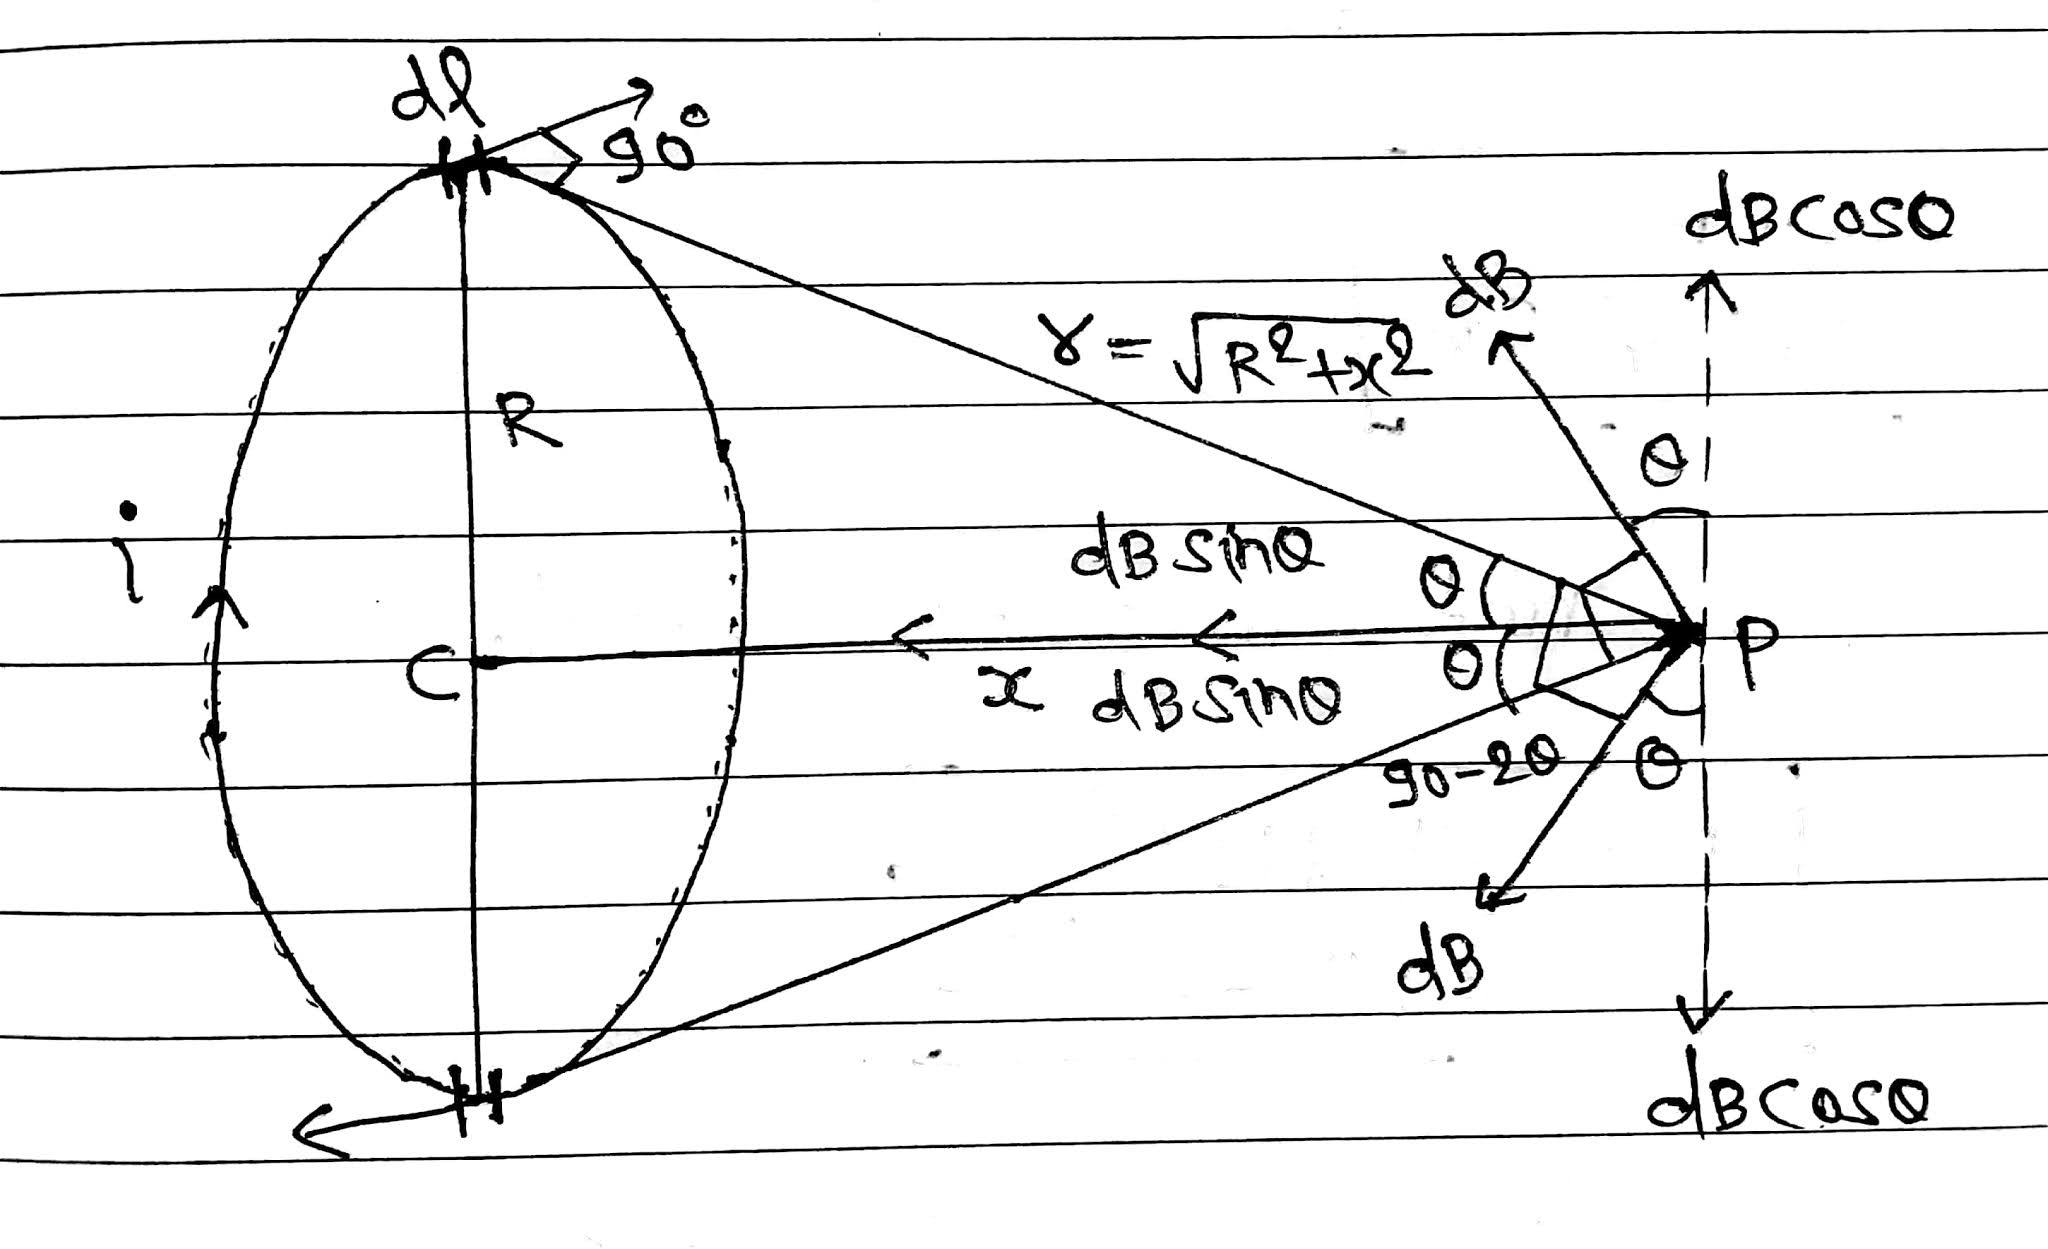 dl
90°
dB cosθ
dB
r = √R²+x²
R
θ
i
dB sinθ
θ
C
x
dB sinθ
θ
P
90-2θ
θ
dB
dB cosθ